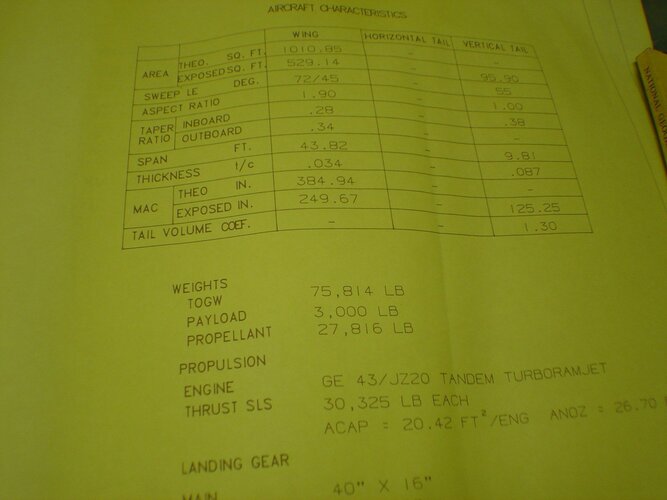 AIRCRAFT CHARACTERISTICS
WING HORIZONTAL TAIL VERTICAL TAIL
AREA THEO. SQ. FT. 1010.85 - -
EXPOSED SQ. FT. 529.14 - 95.90
SWEEP LE DEG. 72/45 - 55
ASPECT RATIO 1.90 - 1.00
TAPER RATIO INBOARD .28 - .38
OUTBOARD .34 - -
SPAN FT. 43.82 - 9.81
THICKNESS t/c .034 - .087
MAC THEO IN. 384.94 - -
EXPOSED IN. 249.67 - 125.25
TAIL VOLUME COEF. - - 1.30
WEIGHTS
TOGW 75,814 LB
PAYLOAD 3,000 LB
PROPELLANT 27,816 LB
PROPULSION
ENGINE GE 43/JZ20 TANDEM TURBORAMJET
THRUST SLS 30,325 LB EACH
ACAP = 20.42 FT²/ENG ANOZ = 26.70
LANDING GEAR
MAIN 40" X 16"
NATIONAL